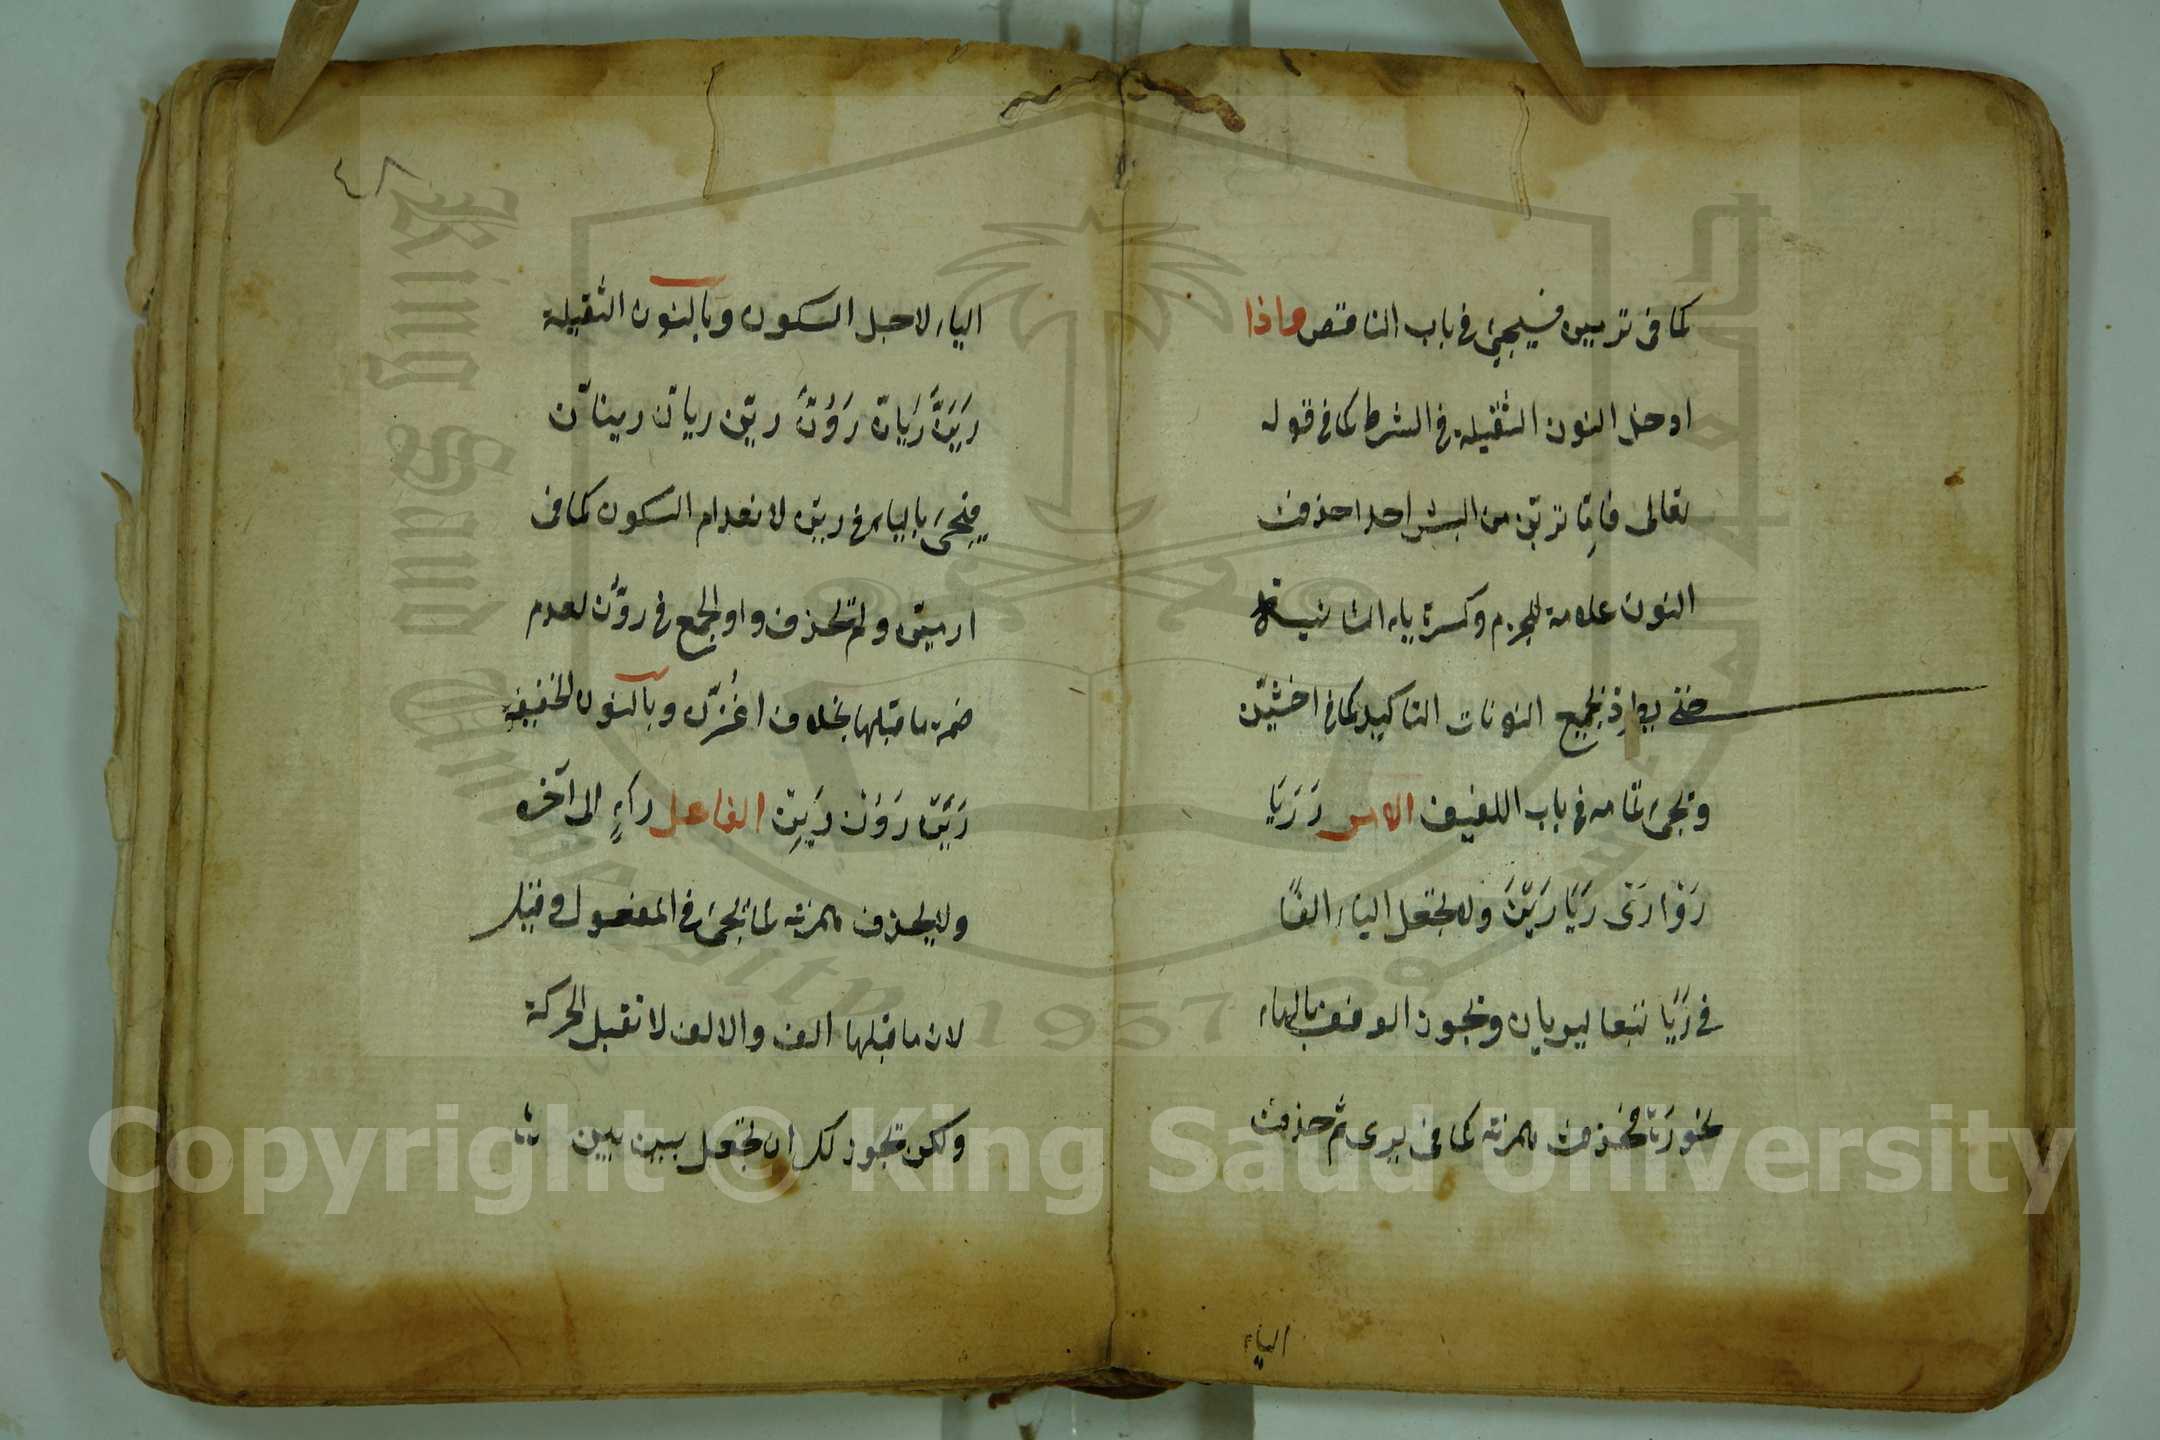 كما فى تربين فسيجئ فى باب الناقص واذا
ادخل النون الثقيلة فى الشرط كما فى قوله
تعالى فاِمّا ترينّ من البشر احدا حذفت
النون علامة للجزم وكسرة ياء التانيث
حتى يطرد بجميع النونات التاكيد كما فى اخشينّ
وتجئ تمامه فى باب اللفيف الامر رَ رَيَا
رَوْا رَىْ رَيَا رَيْنَ ولا تجعل الياء الفًا
فى رَيَا تبعا ليريان وتجوز الوقف بالهاء
نحو رَهْ فحذفت همزته كما فى يرى ثم حذفت
الياء
٤٨
الياء لاجل السكون وبالنون الثقيلة
رَيَنَّ رَيَانّ رَوُنَّ رينّ ريانّ رينانّ
فيجئ بالياء فى رينّ لانعدام السكون كما فى
ارمينّ ولم تحذف واو الجمع فى روُنّ لعدم
ضمة ما قبلها بخلاف اغْزُنّ وبالنون الخفيفة
رَيَنْ رَوُنْ رَيِنْ الفاعل راءٍ الى آخره
ولا يحذف همزته لما تجئ فى المفعول وقيل
لان ما قبلها الف والالف لا تقبل الحركة
ولكن تجوز لك ان تجعل بين بين
King Saud University
1957
Copyright © King Saud University